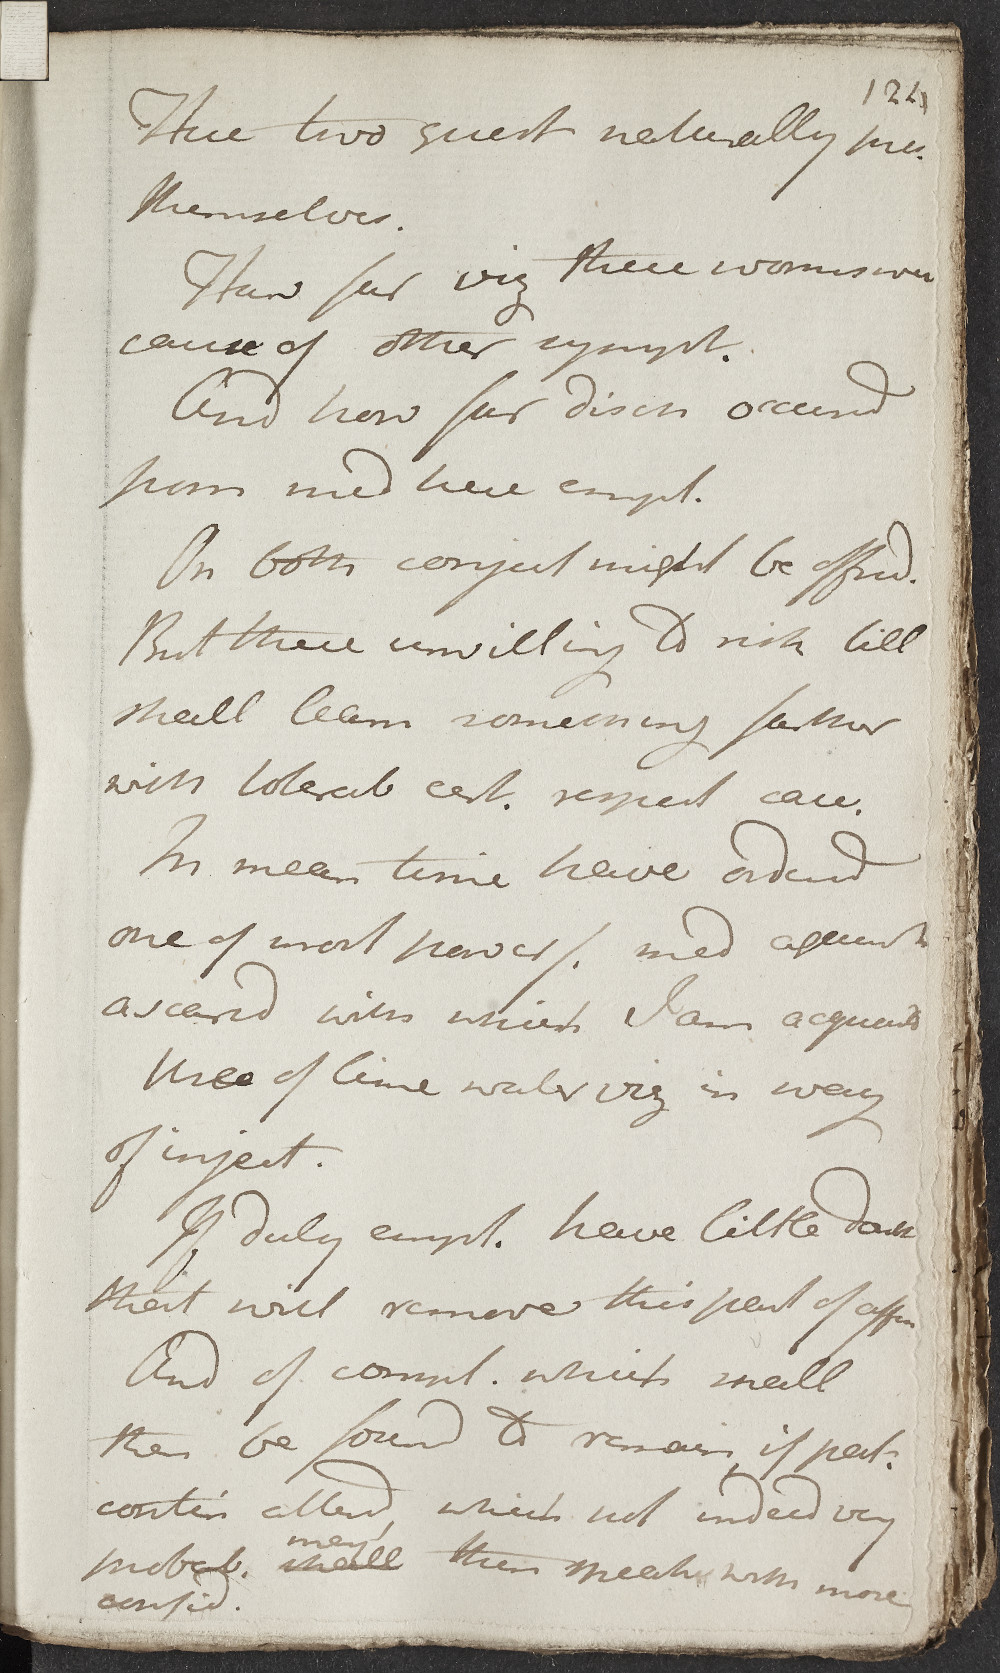 121
Here two quest naturally pres.
themselves.
How far viz these worms were
cause of other sympt.
And how far disch occurrd
from med here empl.
On both conject might be offred.
But these unwilling to risk till
shall learn something farther
with tolerab cert. respect case.
In mean time have orderd
one of most powerf. med against
ascarid with which I am acquaint
Use of lime water viz in way
of inject.
If duly empl. have little doubt
that will remove this part of affn
And of compl. which shall
then be found to remain, if pat.
contin attend, which not indeed very
probab. shall may then speak with more
confid.